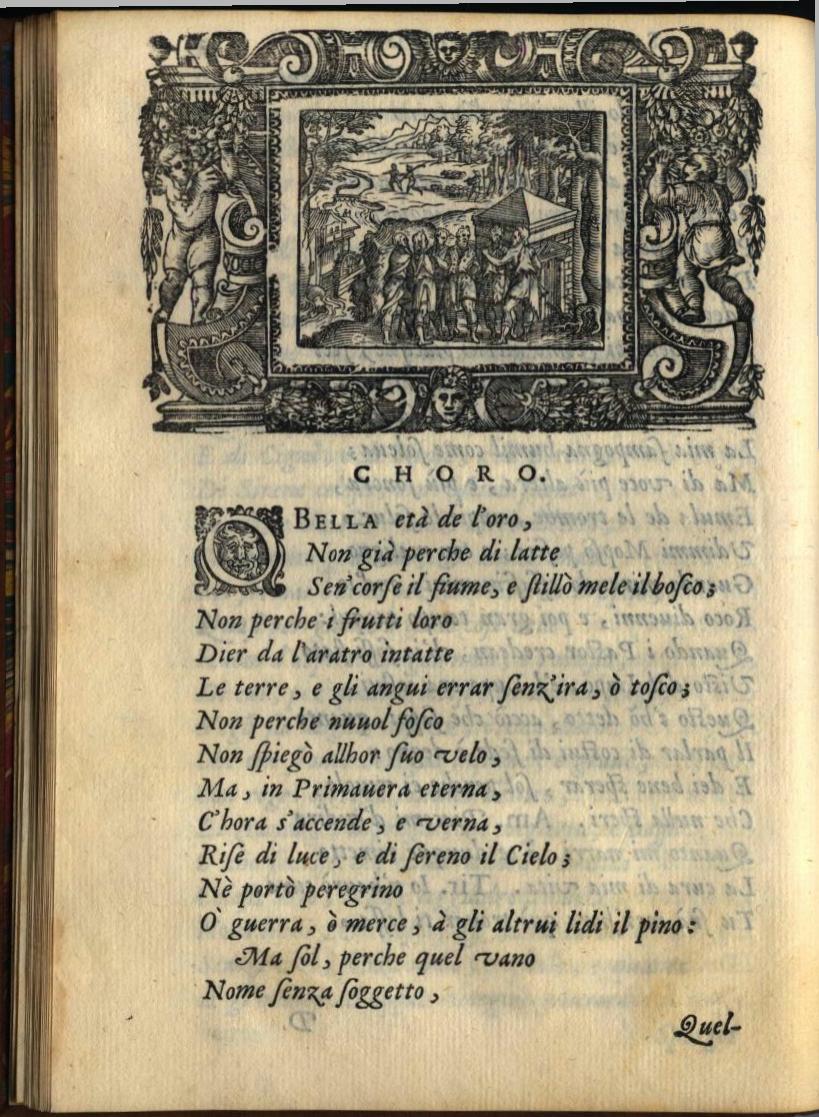 CHORO.
O BELLA età de l'oro,
Non già perche di latte
Sen'corſe il fiume, e ſtillò mele il boſco;
Non perche i frutti loro
Dier da l'aratro intatte
Le terre, e gli angui errar ſenz'ira, ò toſco;
Non perche nuuol foſco
Non ſpiegò allhor ſuo velo,
Ma, in Primauera eterna,
C'hora s'accende, e verna,
Riſe di luce, e di ſereno il Cielo;
Nè portò peregrino
O' guerra, ò merce, à gli altrui lidi il pino:
Ma ſol, perche quel vano
Nome ſenza ſoggetto,
Quel-